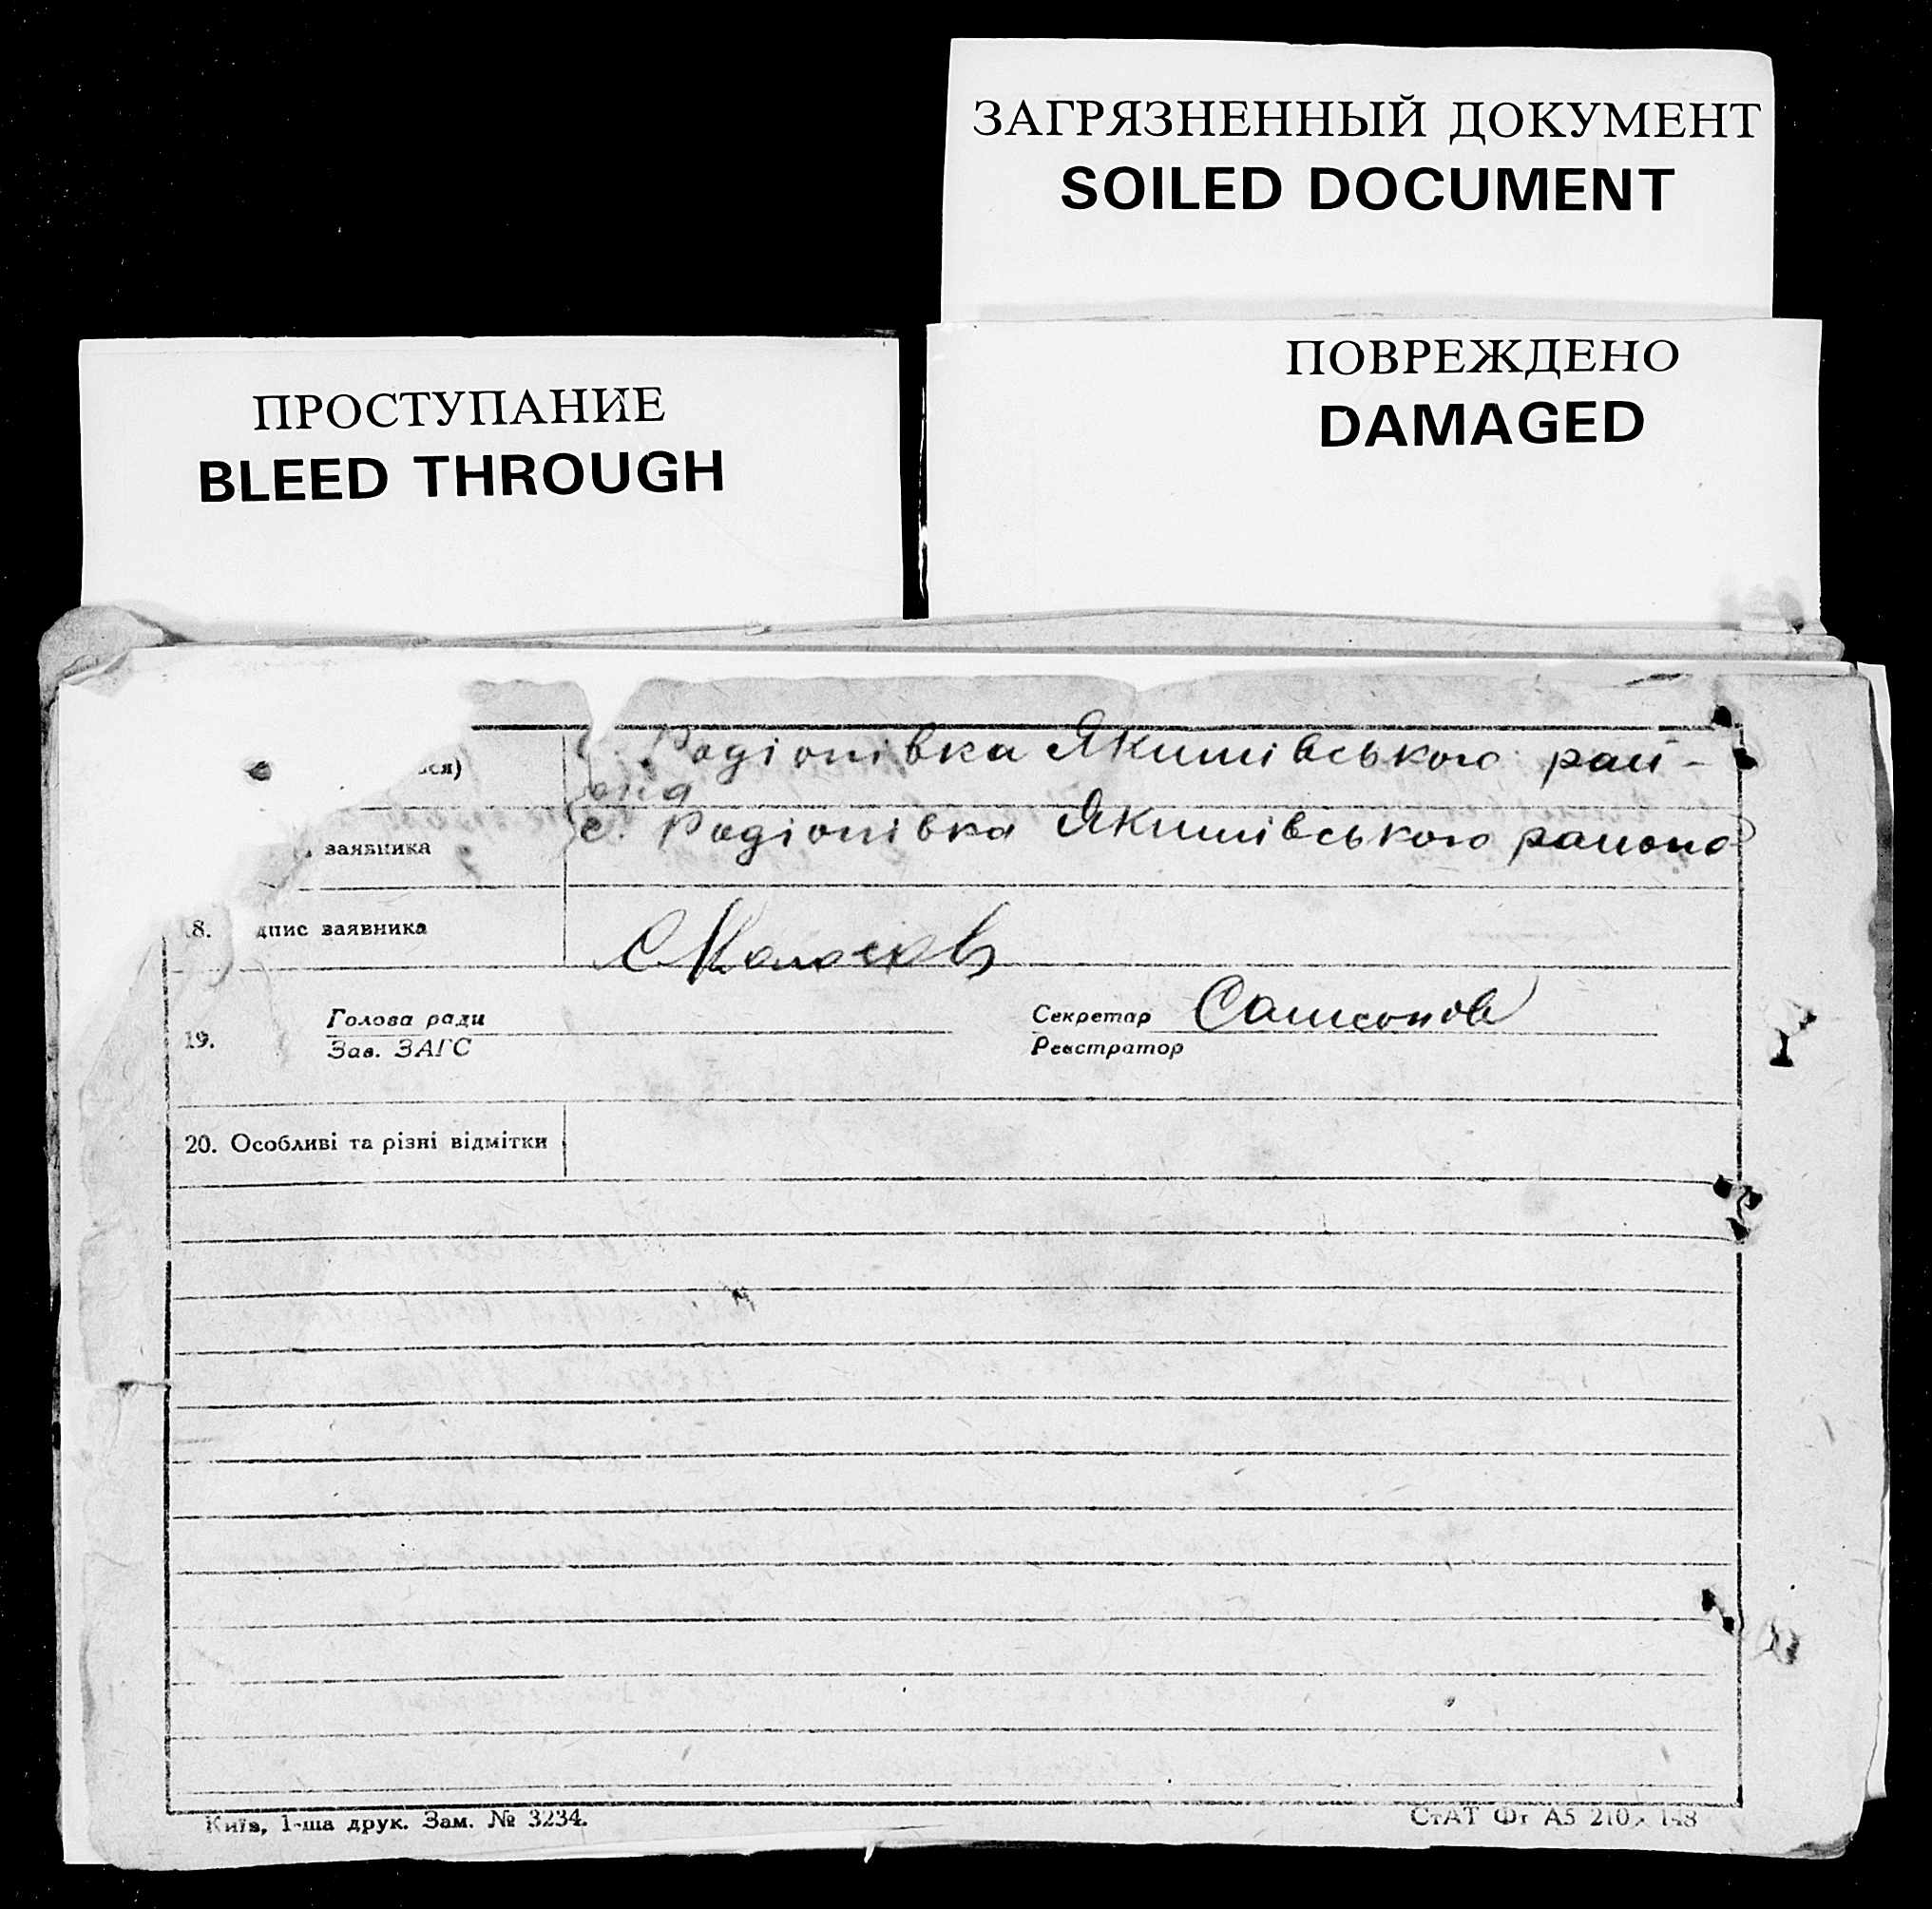 ЗАГРЯЗНЕННЫЙ ДОКУМЕНТ
SOILED DOCUMENT
ПРОСТУПАНИЕ
BLEED THROUGH
ПОВРЕЖДЕНО
DAMAGED
ся) Радіонівка Якимівського рай-
она
заявника с. Радіонівка Якимівського района
8. дпис заявника
19. Голова ради Секретар Самсонов
Зав. ЗАГС Реєстратор
20. Особливі та різні відмітки
Київ, 1-ша друк. Зам. № 3234. СтАТ Фт А5 210 × 148